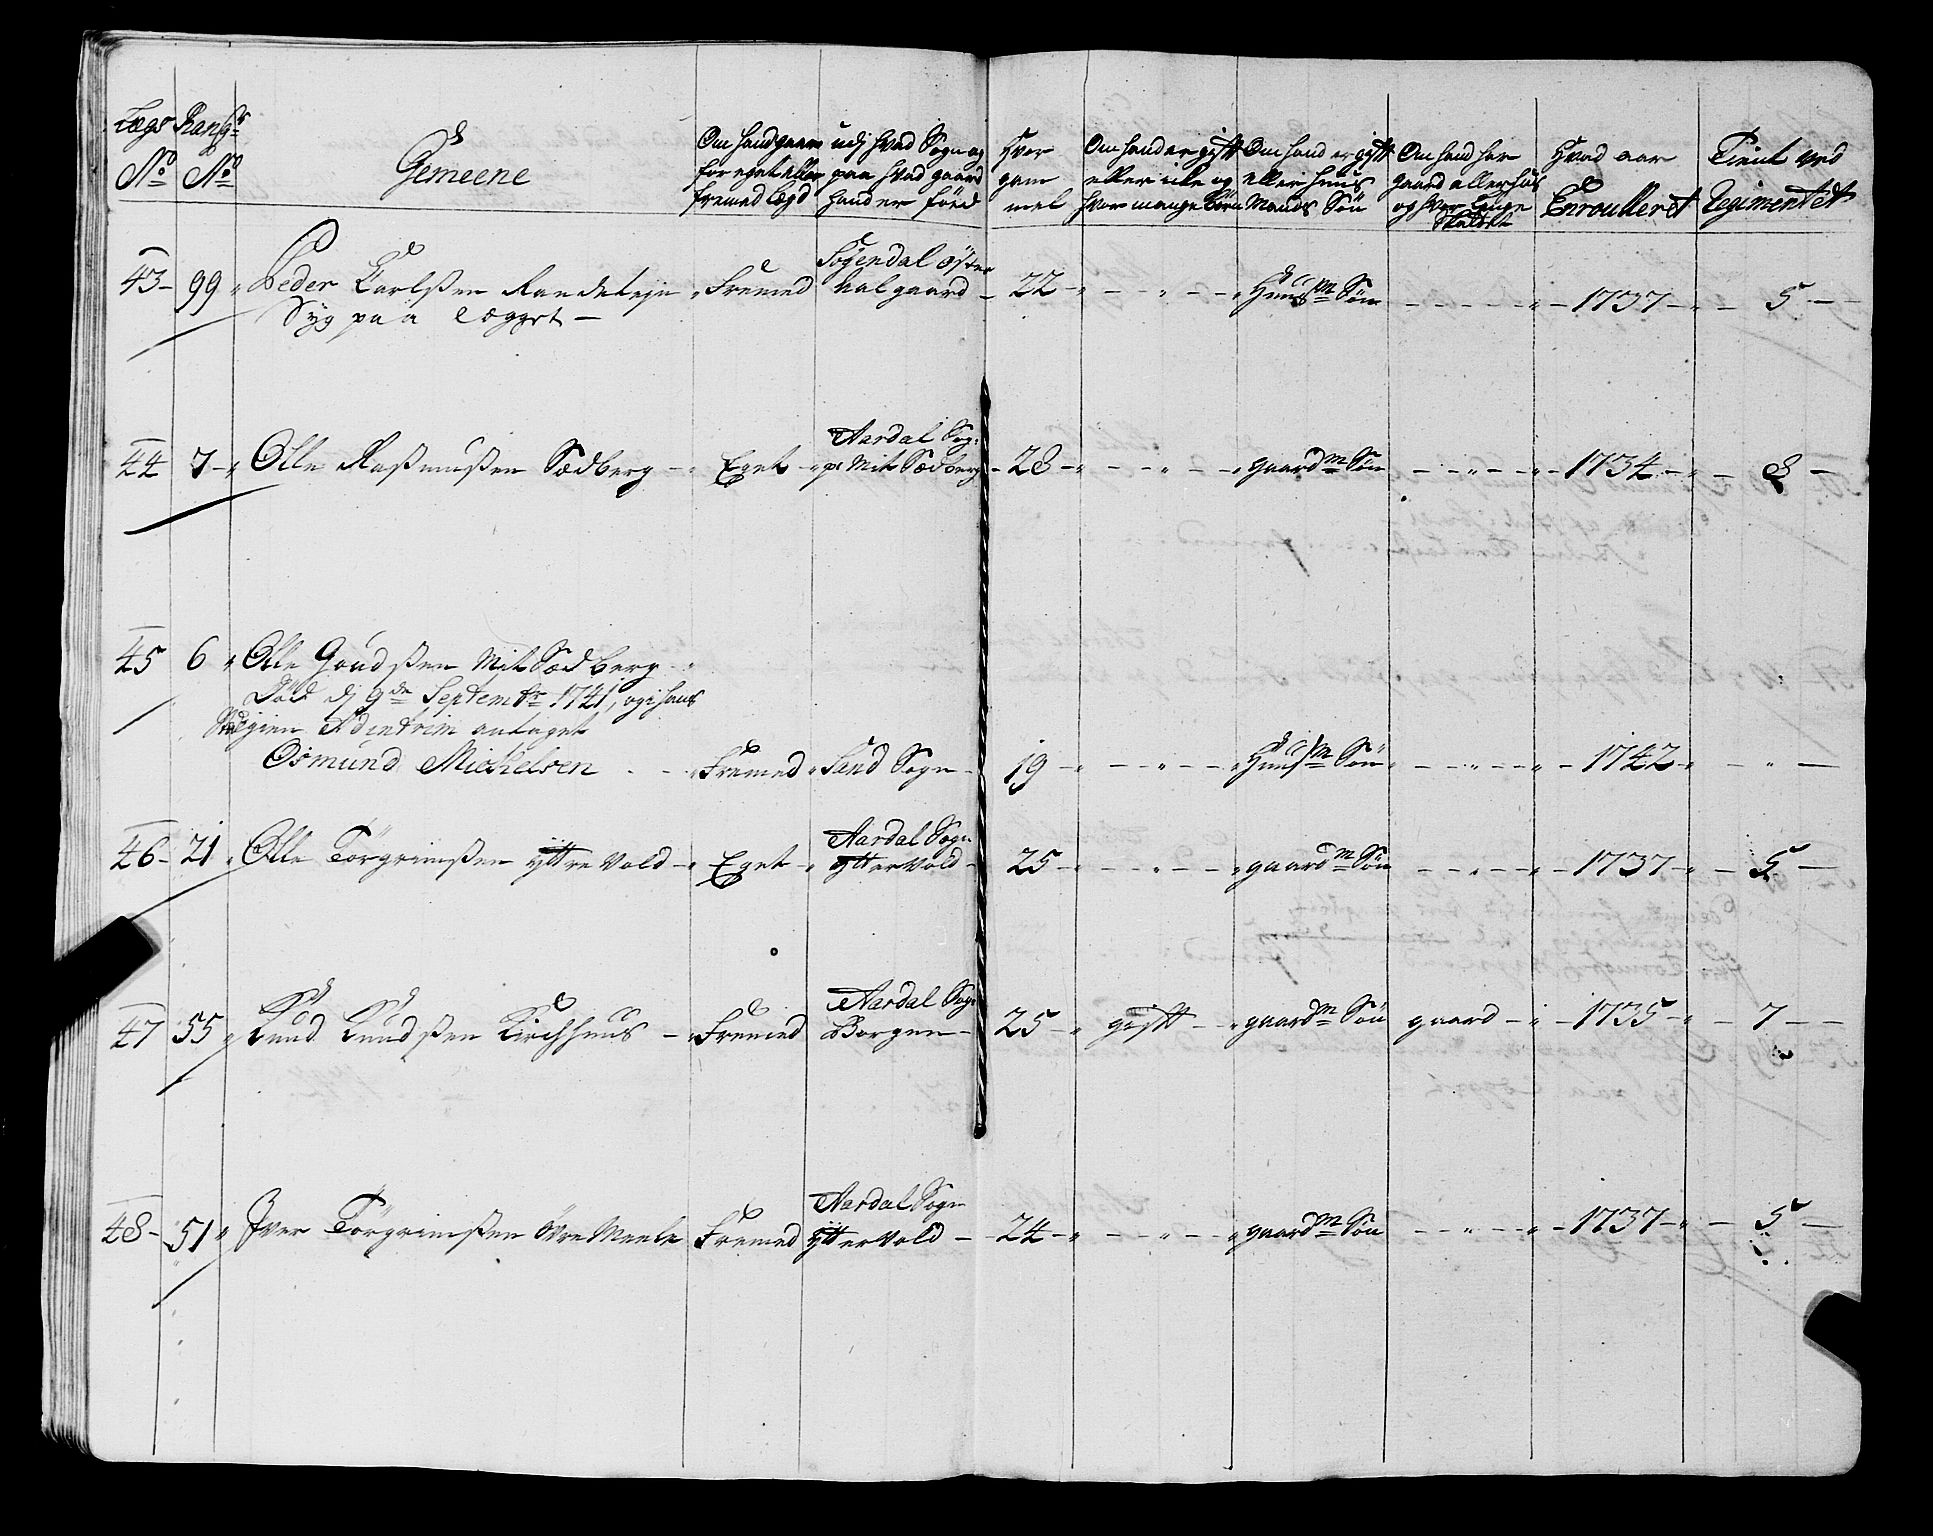 Lægs Rangs Gemeene Om hand gaar for eget eller fremed Lægd udj hvad Sogn og paa hvad gaard hand er föed Hvor gam mel Om hand er gift eller icke og hvor mange Börn Om hand er gift eller huus Mands Sön Om hand har gaard eller hus og hvor Hvad aar Enroulleret Tient ved Regimentet
No No
43 99 Peder Carlssen Randeleje Fremed Sogendal Öster Aalgaard 22 Huusm Sön 1737 5
Syg paa Lægget
44 7 Olle Rasmussen Sædberg Eget Aardal Sogn pl Mit Sædberg 28 gaardm Sön 1734 8
45 6 Olle Gaudssen Mit Sædberg
Död dj 9de Septembr 1741, og i hans
Sted igien antaget
Osmund Michelsen Fremed Sand Sogn 19 Huusm Sön 1742
46 21 Olle Törgrimssen Yttre Vold Eget Aardal Sogn Ytter Vold 25 gaardm Sön 1737 5
47 55 Knud Knudssen Kirchhuus Fremed Aardal Sogn Borgen 25 gift gaardm Sön gaard 1735 7
48 51 Iver Törgrimssen Övre Meele Fremed Aardal Sogn Ytter Vold 24 gaardm Sön 1737 5